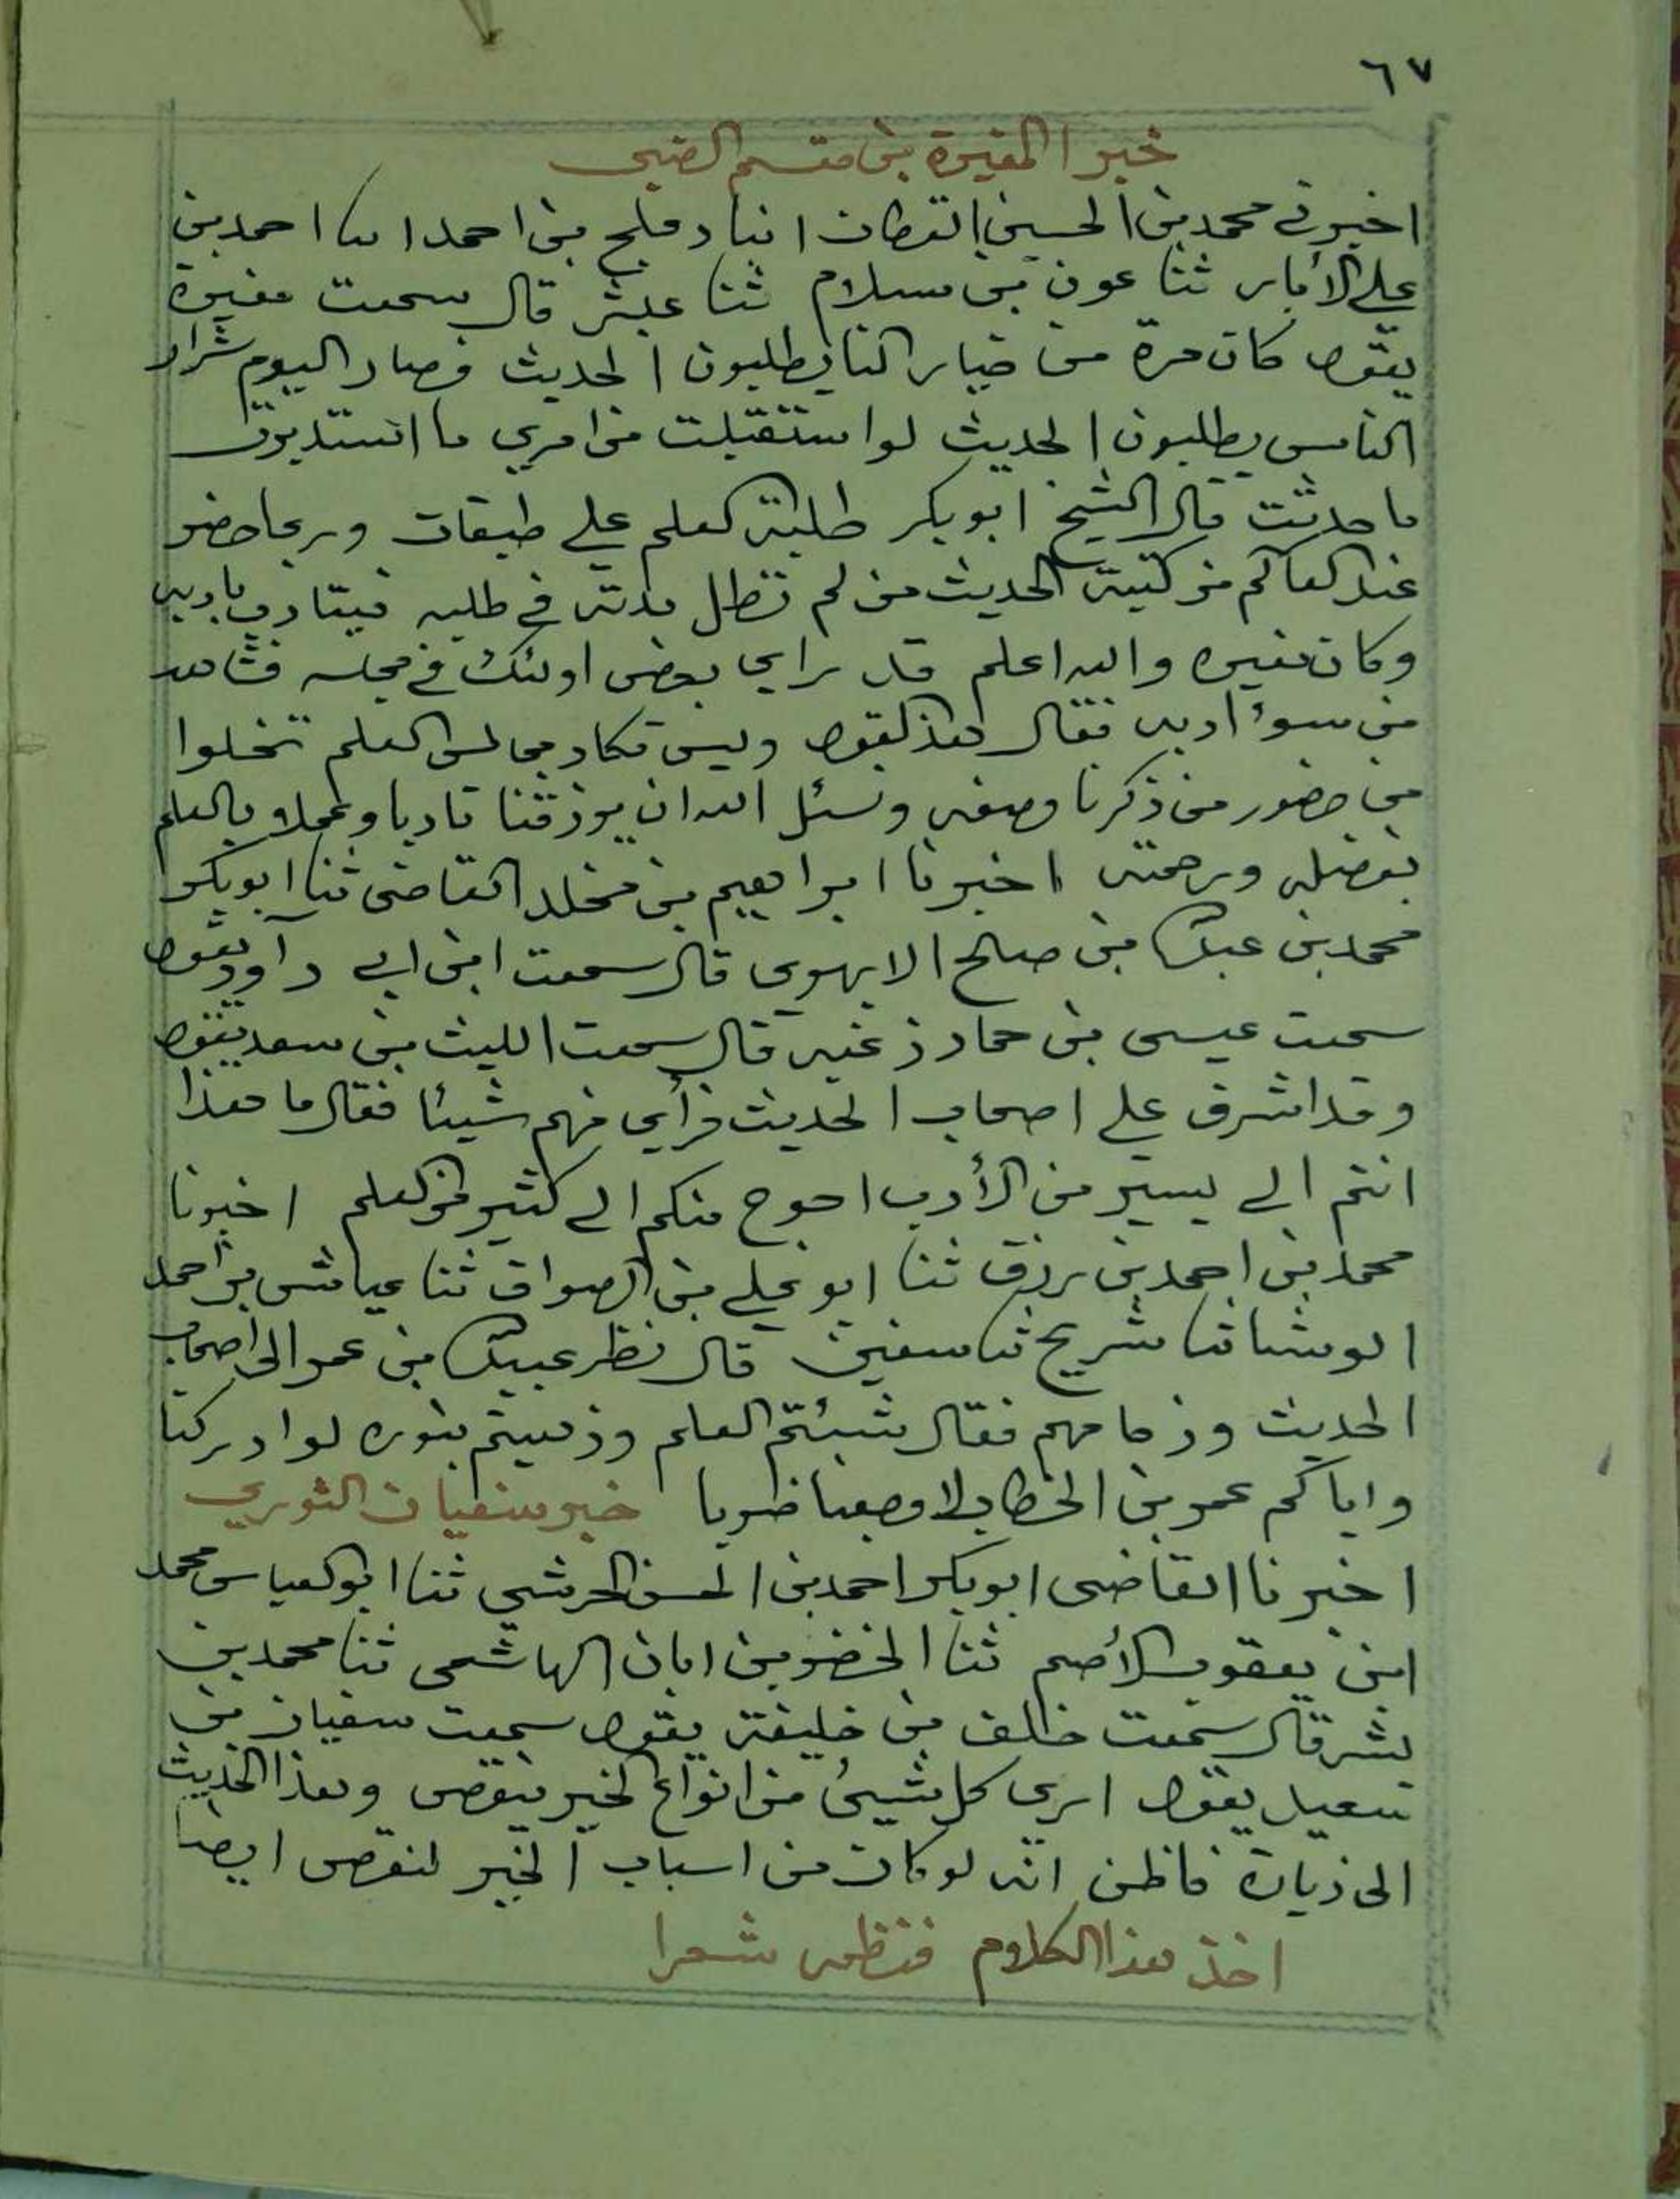 ٦٧
خبر المغيرة بن مقسم الضبى
اخبرنى محمد بن الحسين القطان انبا دعلج بن احمد انا احمد بن
على الأبار ثنا عون بن سلام ثنا عبثر قال سمعت مغيرة
يقول كان مرة من خيار الناس يطلبون الحديث فصار اليوم شرار
الناس يطلبون الحديث لو استقبلت من امري ما استدبرت
ما حدثت قال الشيخ ابو بكر طلبة العلم على طبقات وربما حضر
عند العالم من كتبة الحديث من لم تطل مدته في طلبه فيتادب بادبه
وكان مغيره والله اعلم قد راي بعض اولئك في مجلسه فشاهد
من سوء ادبه فقال هذا القول وليس تكاد مجالس العلم تخلوا
من حضور من ذكرنا وصفه ونسئل الله ان يرزقنا تادبا وعملا بالعلم
بفضله ورحمته اخبرنا ابراهيم بن مخلد القاضى ثنا ابو بكر
محمد بن عبدالله بن صالح الابهري قال سمعت ابن ابي داود يقول
سمعت عيسى بن حماد زغبه قال سمعت الليث بن سعد يقول
وقد اشرف على اصحاب الحديث فرأى منهم شيئا فقال ما هذا
انتم الى يسير من الأدب احوج منكم الى كثير من العلم اخبرنا
محمد بن احمد بن رزق ثنا ابو علي بن الصواف ثنا عياش بن احمد
ابو مشا ثنا شريح ثنا سفين قال نظر عبيدالله بن عمر الى اصحاب
الحديث وزحامهم فقال شبئتم العلم وذهبتم بنوره لو ادركنا
واياكم عمر بن الخطاب لاوجعنا ضربا خبر سفيان الثوري
اخبرنا القاضى ابو بكر احمد بن الحسن الحرشي ثنا ابو العباس محمد
ابن يعقوب الأصم ثنا الخضر بن ابان الهاشمى ثنا محمد بن
بشر قال سمعت خلف بن خليفة يقول سمعت سفيان بن
سعيد يقول ارى كل شيئ من انواع الخير ينقص وهذا الحديث
الى زيادة فاظن انه لو كان من اسباب الخير لنقص ايضا
اخذ هذا الكلام فنظمه شعرا